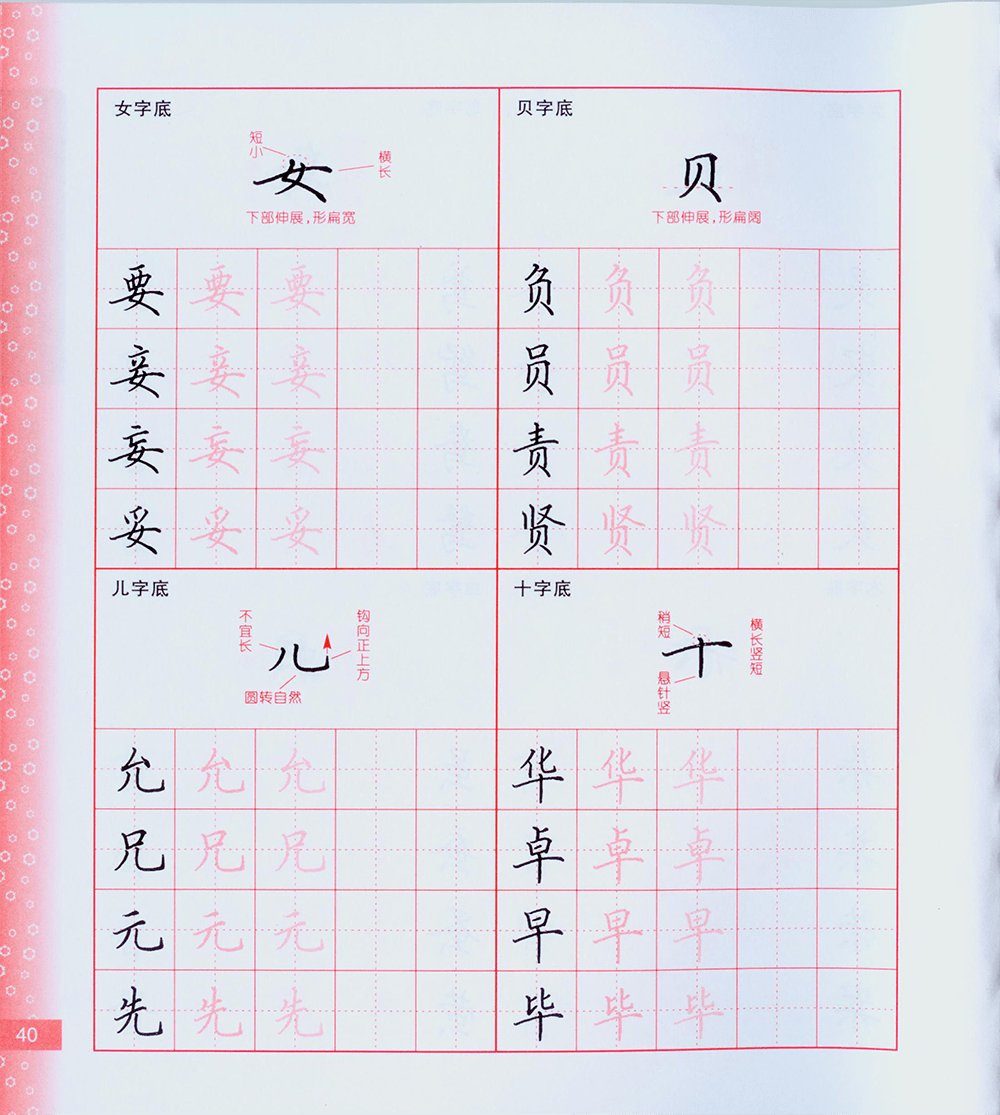 女字底
短小
横长
女
下部伸展,形扁宽
要 要 要
妾 妾 妾
妄 妄 妄
妥 妥 妥
贝字底
贝
下部伸展,形扁阔
负 负 负
员 员 员
责 责 责
贤 贤 贤
儿字底
不宜长
钩向正上方
儿
圆转自然
允 允 允
兄 兄 兄
元 元 元
先 先 先
十字底
稍短
横长竖短
十
悬针竖
华 华 华
卓 卓 卓
早 早 早
毕 毕 毕
40